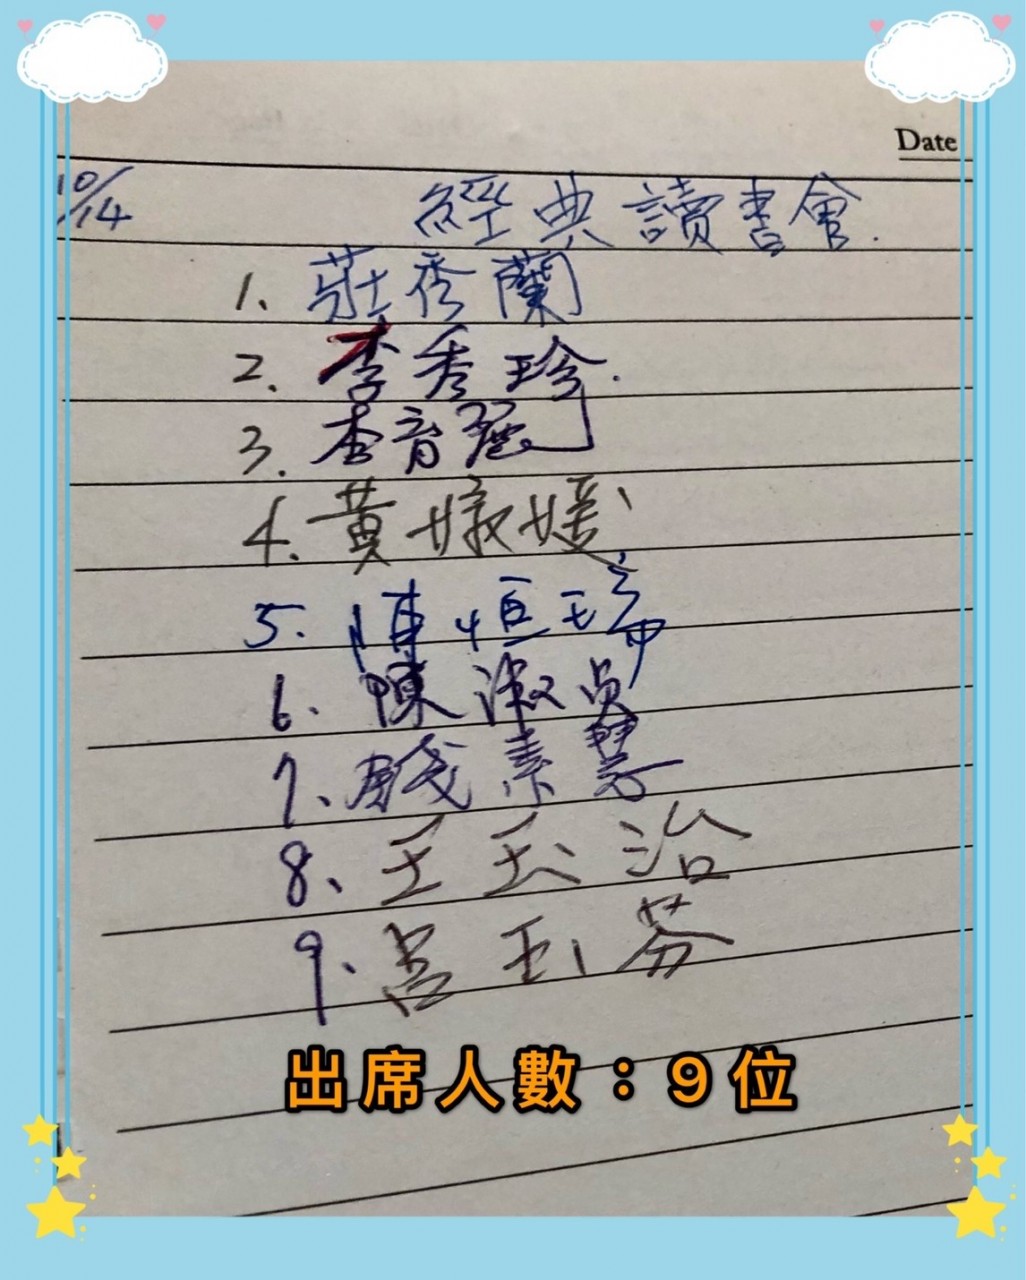 Date
10/14 經典讀書會.
1、莊秀蘭
2. 李秀珍.
3. 李育麗
4. 黃媛
5. 陳恒
6. 陳淑貞
7、素慧
8、王玉治
9、呂玉芬
出席人數：9位